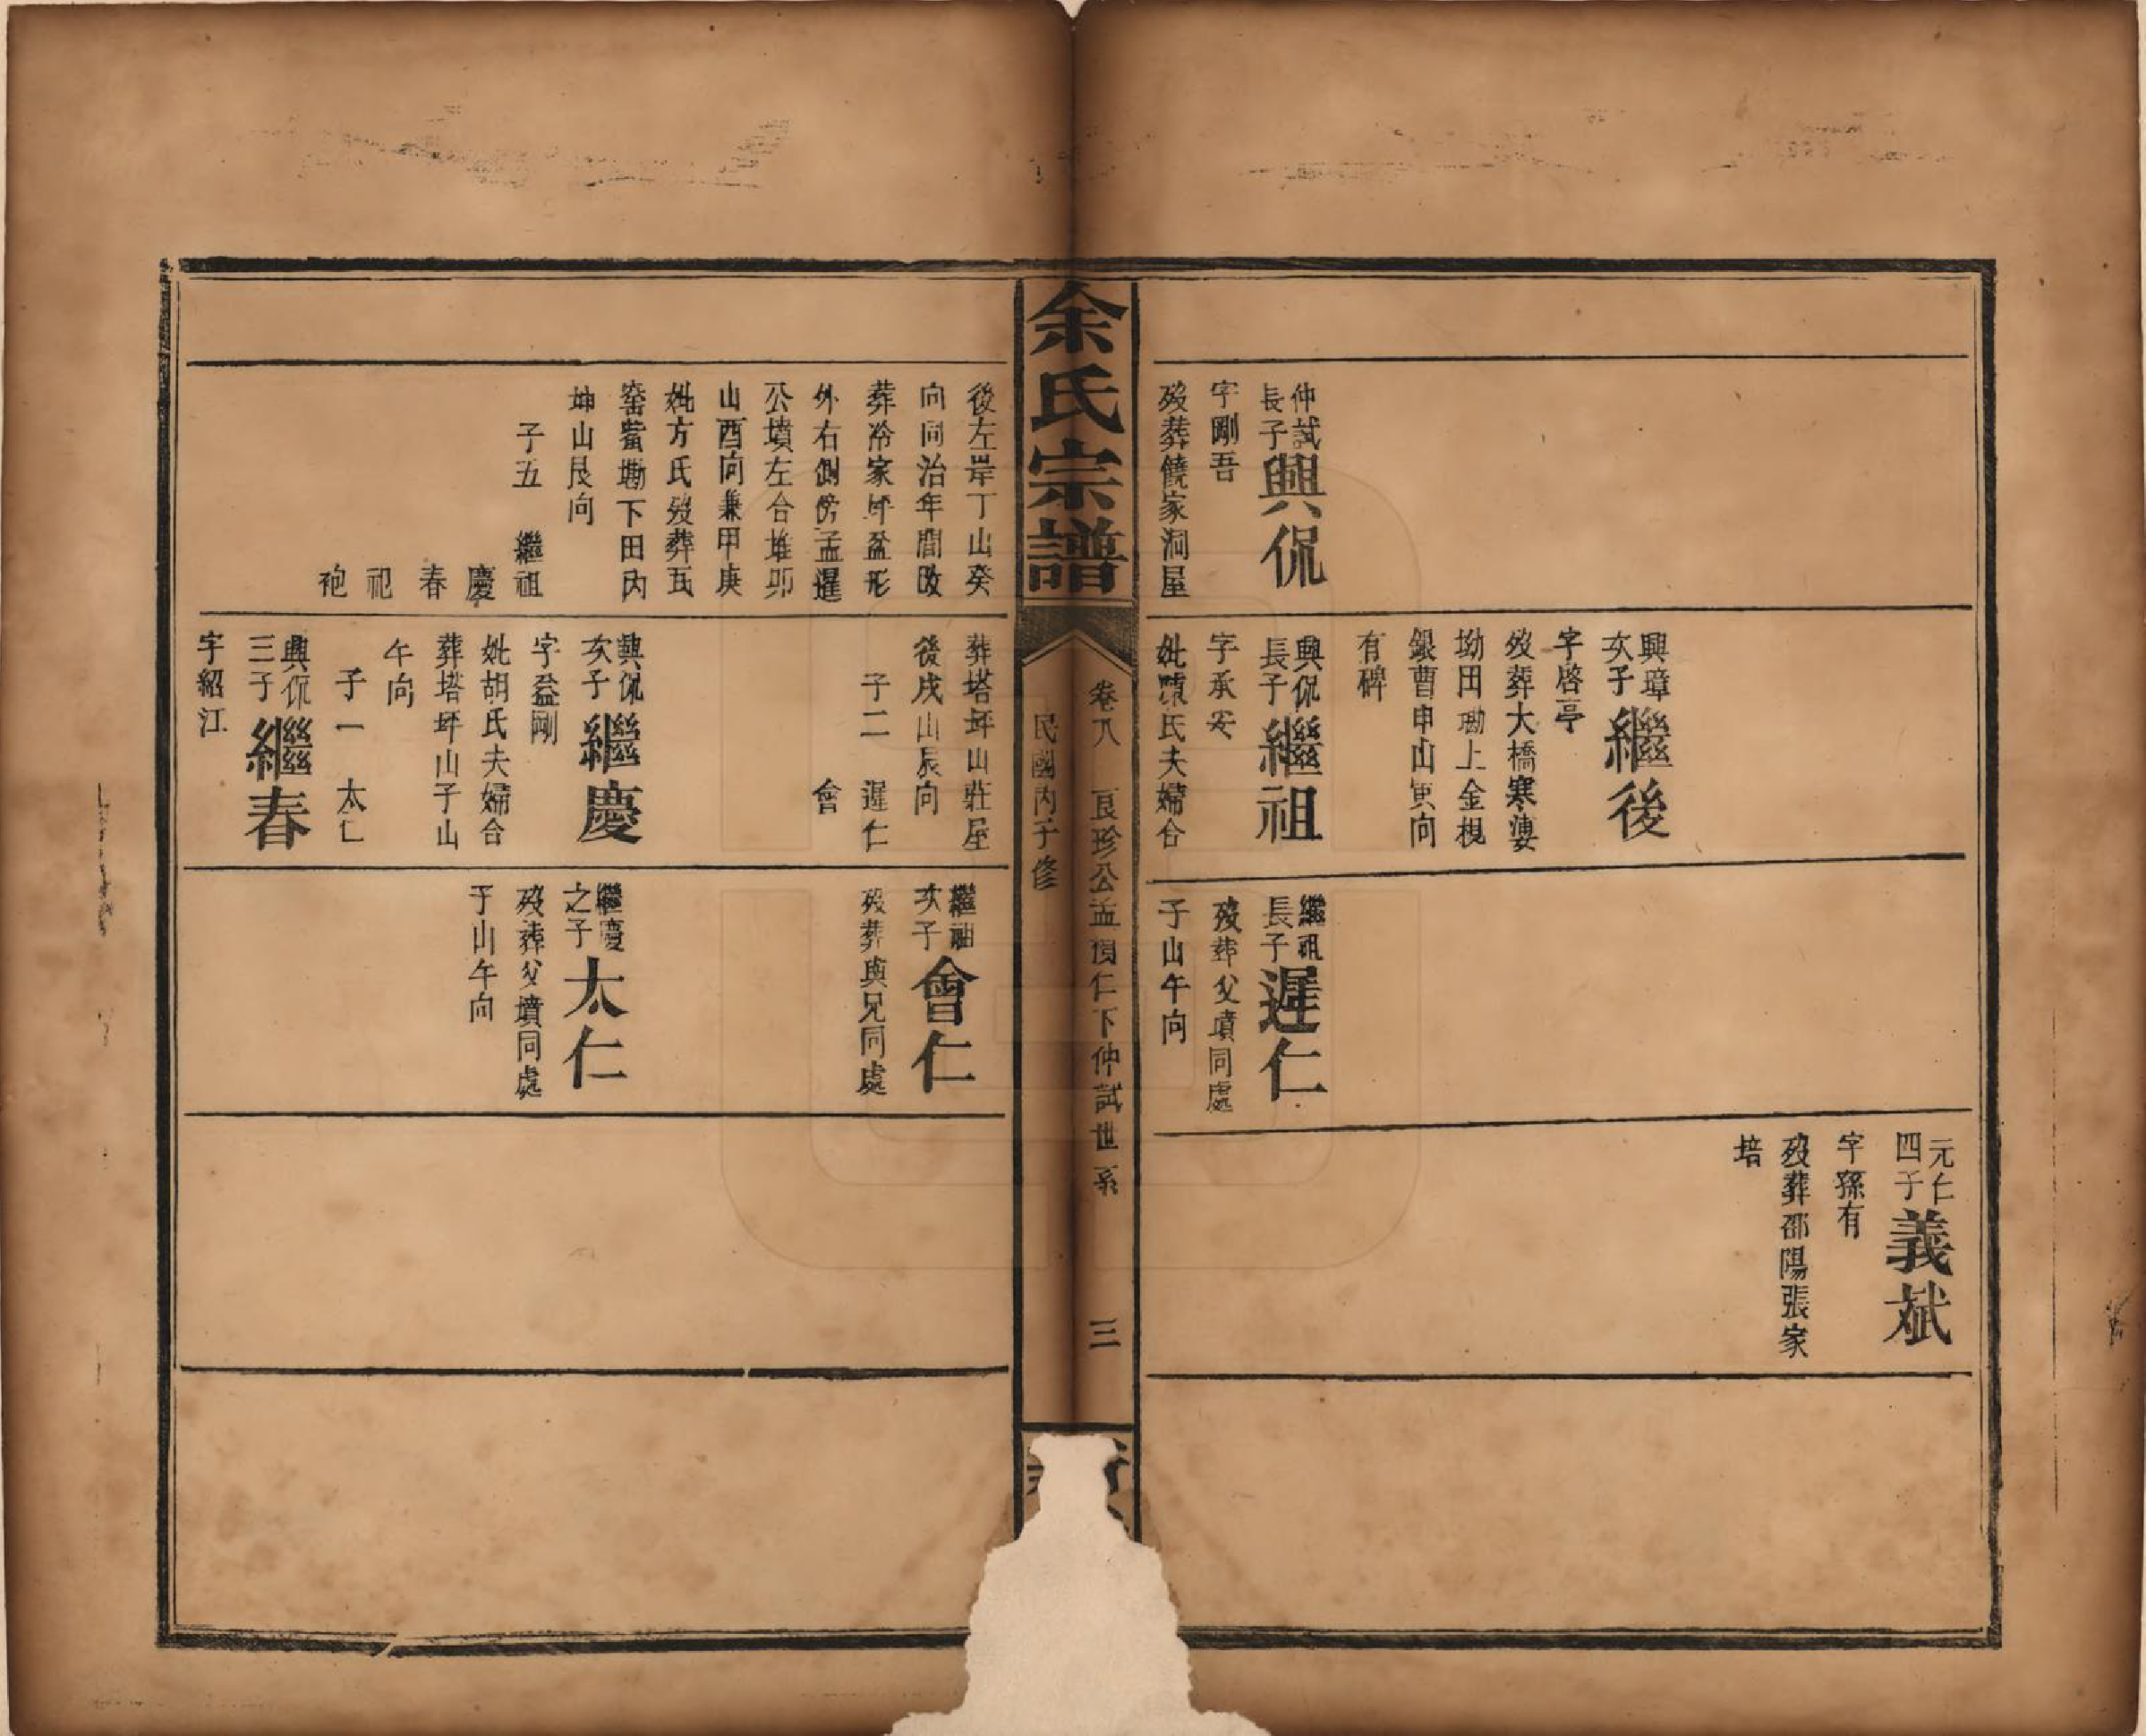 仲試
長子
興侃
字剛吾
歿葬饒家洞屋
興璋
次子
繼後
字啓亭
歿葬大橋寒婆
坳田墈上金梘
銀曹申山寅向
有碑
興侃
長子
繼祖
字承安
妣陳氏夫婦合
繼祖
長子
遲仁
歿葬父墳同處
子山午向
元仁
四子
義斌
字孫有
歿葬邵陽張家
培
余氏宗譜
卷八 良珍公孟 仁下仲試世系 三
民國丙子修
後左岸丁山癸
向同治年間改
葬冷家坪盆形
外右側傍孟暹
公墳左合堆卯
山酉向兼甲庚
妣方氏歿葬瓦
窑嵅墈下田內
坤山艮向
子五 繼祖
慶
春
祀
袍
葬塔坪山莊屋
後戌山辰向
子二 遲仁
會
興侃
次子
繼慶
字益剛
妣胡氏夫婦合
葬塔坪山子山
午向
子一 太仁
興侃
三子
繼春
字紹江
繼祖
次子
會仁
歿葬與兄同處
繼慶
之子
太仁
歿葬父墳同處
子山午向